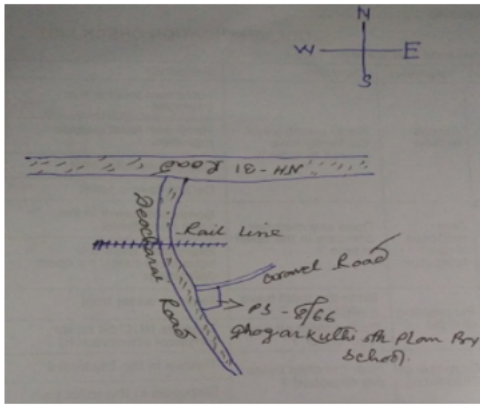 N
W E
S
NH-31 Road
Deocharai Road
Rail Line
Gravel Road
PS - 8/66
5th Plan Pry
School.